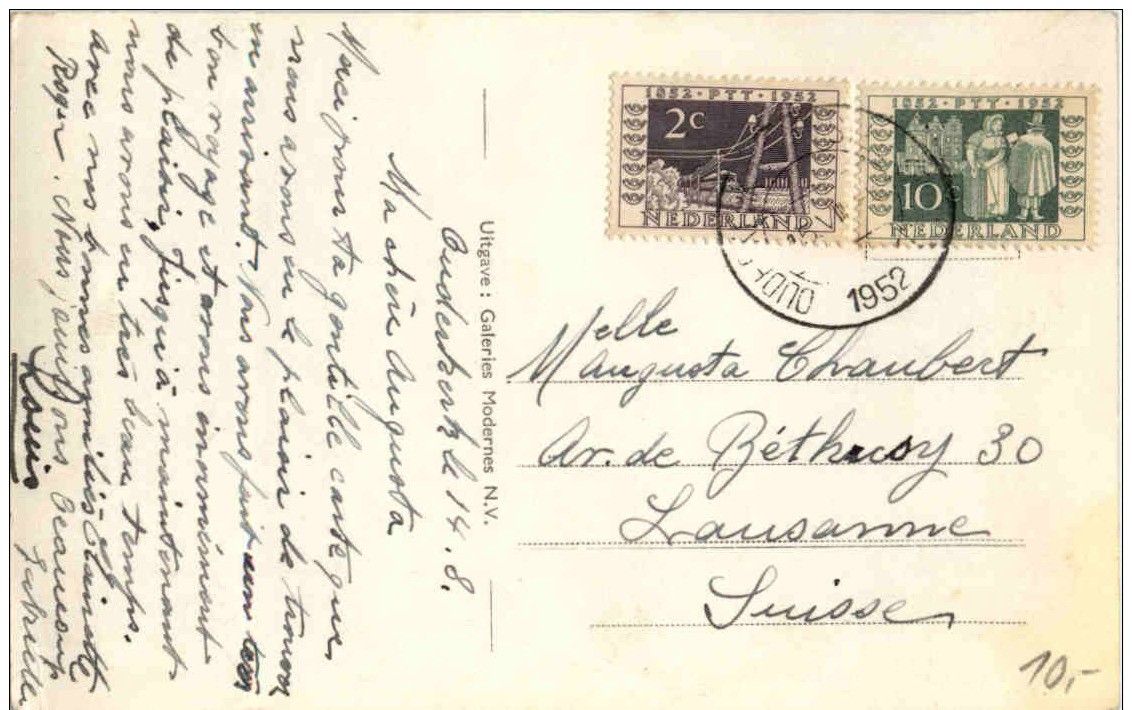 Oudenhorn le 14. 8.
Ma chère Augusta
Merci pour ta gentille carte que
nous avons eu le plaisir de trouver
en arrivant. Nous avons fait un très
bon voyage et avons énormément
de plaisir, jusqu'à maintenant
nous avons eu très beau temps.
avec nos bonnes amitiés
Roger. Nous jouissons beaucoup
Louis
Uitgave: Galeries Modernes N.V.
1852 · PTT · 1952
2c
NEDERLAND
1852 · PTT · 1952
10c
NEDERLAND
1952
Melle
Augusta Chaubert
Av. de Béthusy 30
Lausanne
Suisse
10,-